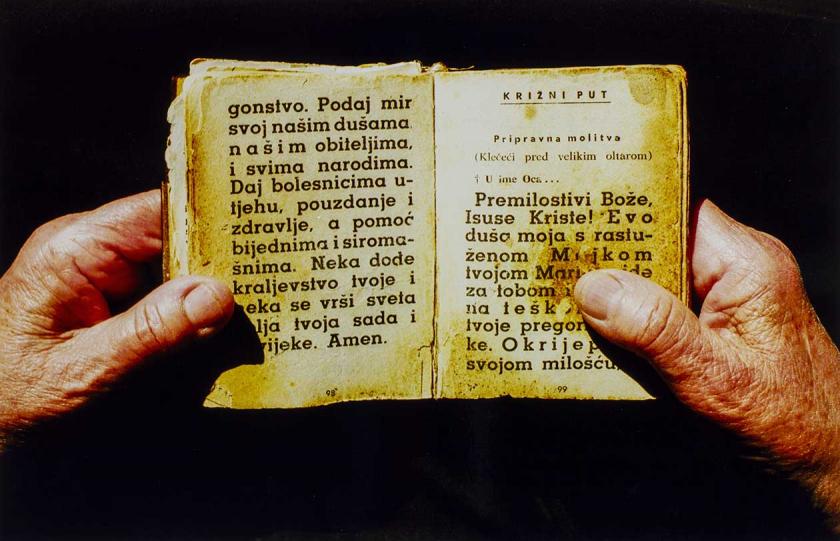 gonstvo. Podaj mir
svoj našim dušama
našim obiteljima,
i svima narodima.
Daj bolesnicima u-
tjehu, pouzdanje i
zdravlje, a pomoć
bijednima i siroma-
šnima. Neka dođe
kraljevstvo tvoje i
neka se vrši sveta
tvoja sada i
Amen.
98
KRIŽNI PUT
Pripravna molitva
(Klečeći pred velikim oltarom)
† U ime Oca...
Premilostivi Bože,
Isuse Kriste! Evo
duša moja s rastu-
ženom Majkom
tvojom
za tobom
na
tvoje
ke.
svojom
99